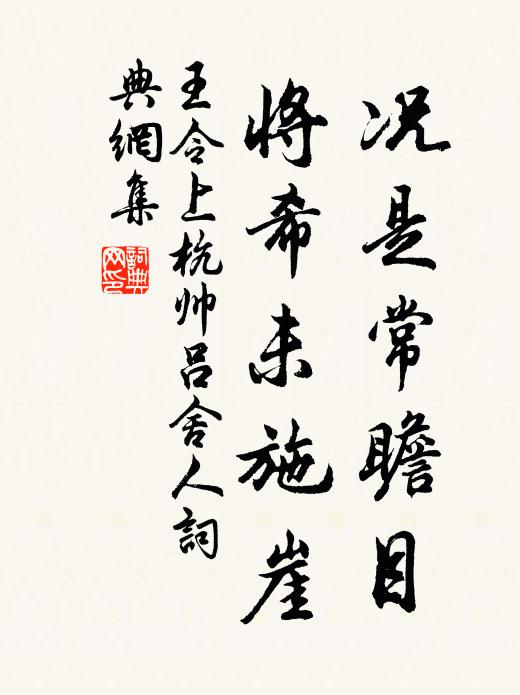 况是常瞻目
將希未施崖
王令上杭帅吕舍人詞
典網集
詞典
网印